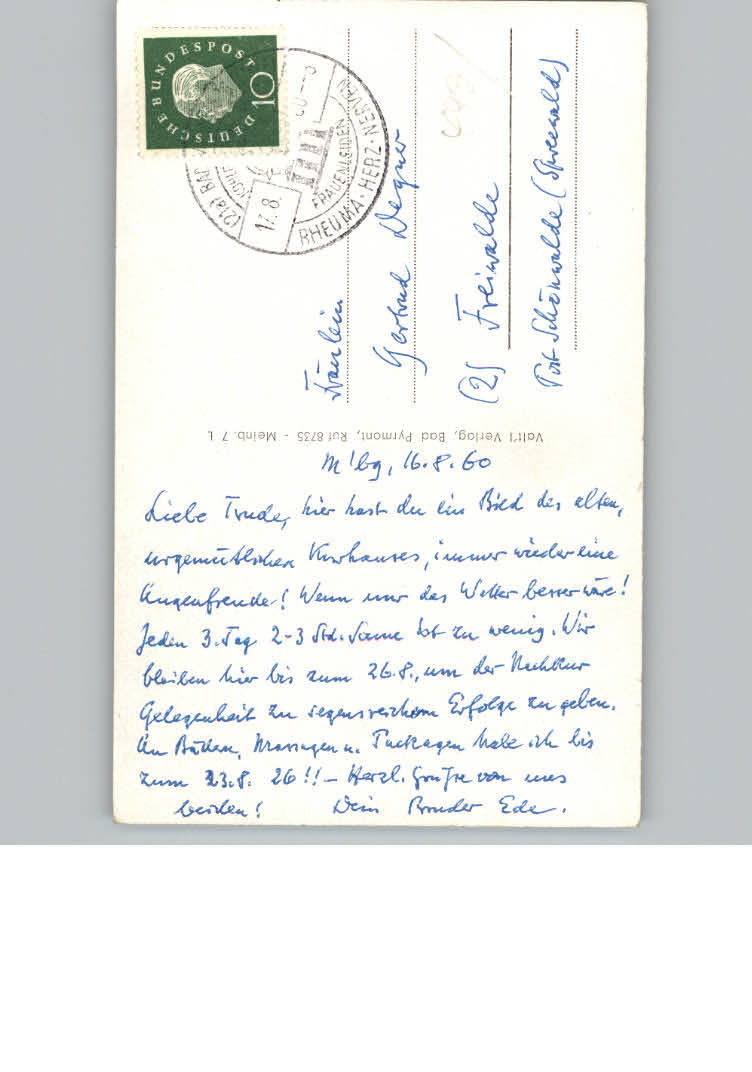 DEUTSCHE BUNDESPOST
10
(21a) BAD
17.8.
RHEUMA · HERZ · NERVEN
FRAUENLEIDEN
Fräulein
Gertrud Degner
(2) Freiwalde
Post Schönwalde (Spreewald)
Valt'l Verlag, Bad Pyrmont, Ruf 8735 - Meinb. 7 L
M'bg, 16.8.60
Liebe Trude, hier hast du ein Bild des alten,
urgemütlichen Kurhauses, immer wieder eine
Augenfreude! Wenn nur das Wetter besser wäre!
Jeden 3. Tag 2-3 Std. Sonne ist zu wenig. Wir
bleiben hier bis zum 26.8., um der Nachkur
Gelegenheit zu segensreichem Erfolge zu geben.
An Bädern, Massagen u. Packungen habe ich bis
zum 23.8. 26!! - Herzl. Grüße von uns
beiden! Dein Bruder Ede.